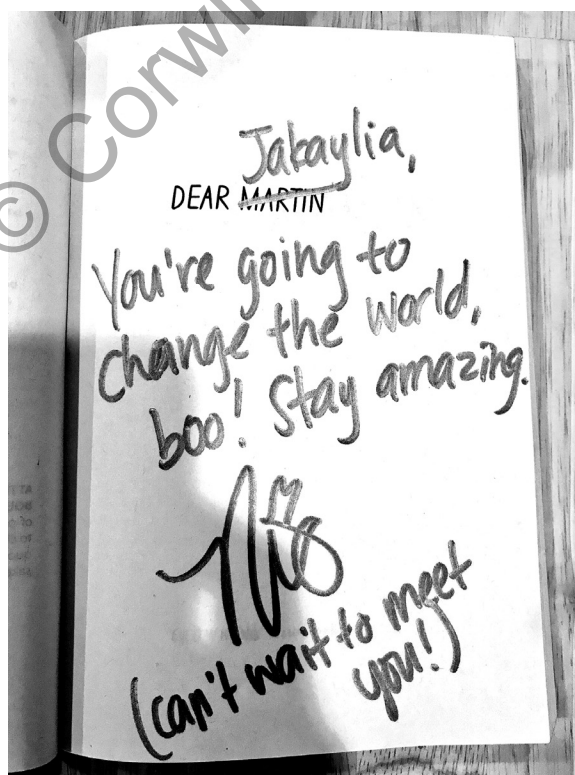 © Corwin
Jakaylia,
DEAR MARTIN
You're going to
change the world,
boo! Stay amazing.
(can't wait to meet
you!)